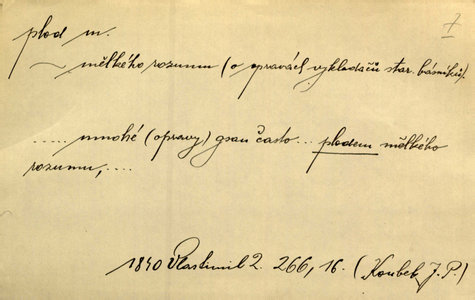 7
plod m.
~ mělkého rozumu (o opravách vykladačů star. básníků).
..... mnohé (opravy) gsau často... plodem mělkého
rozumu, ....
1840 Vlastimil 2. 266, 16. (Koubek J. P.)